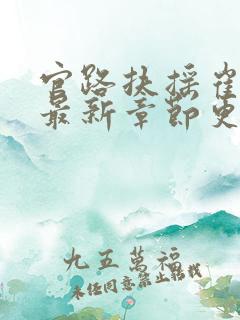 官路扶摇崔
最新章節更
九五萬福
未经同意禁止转载